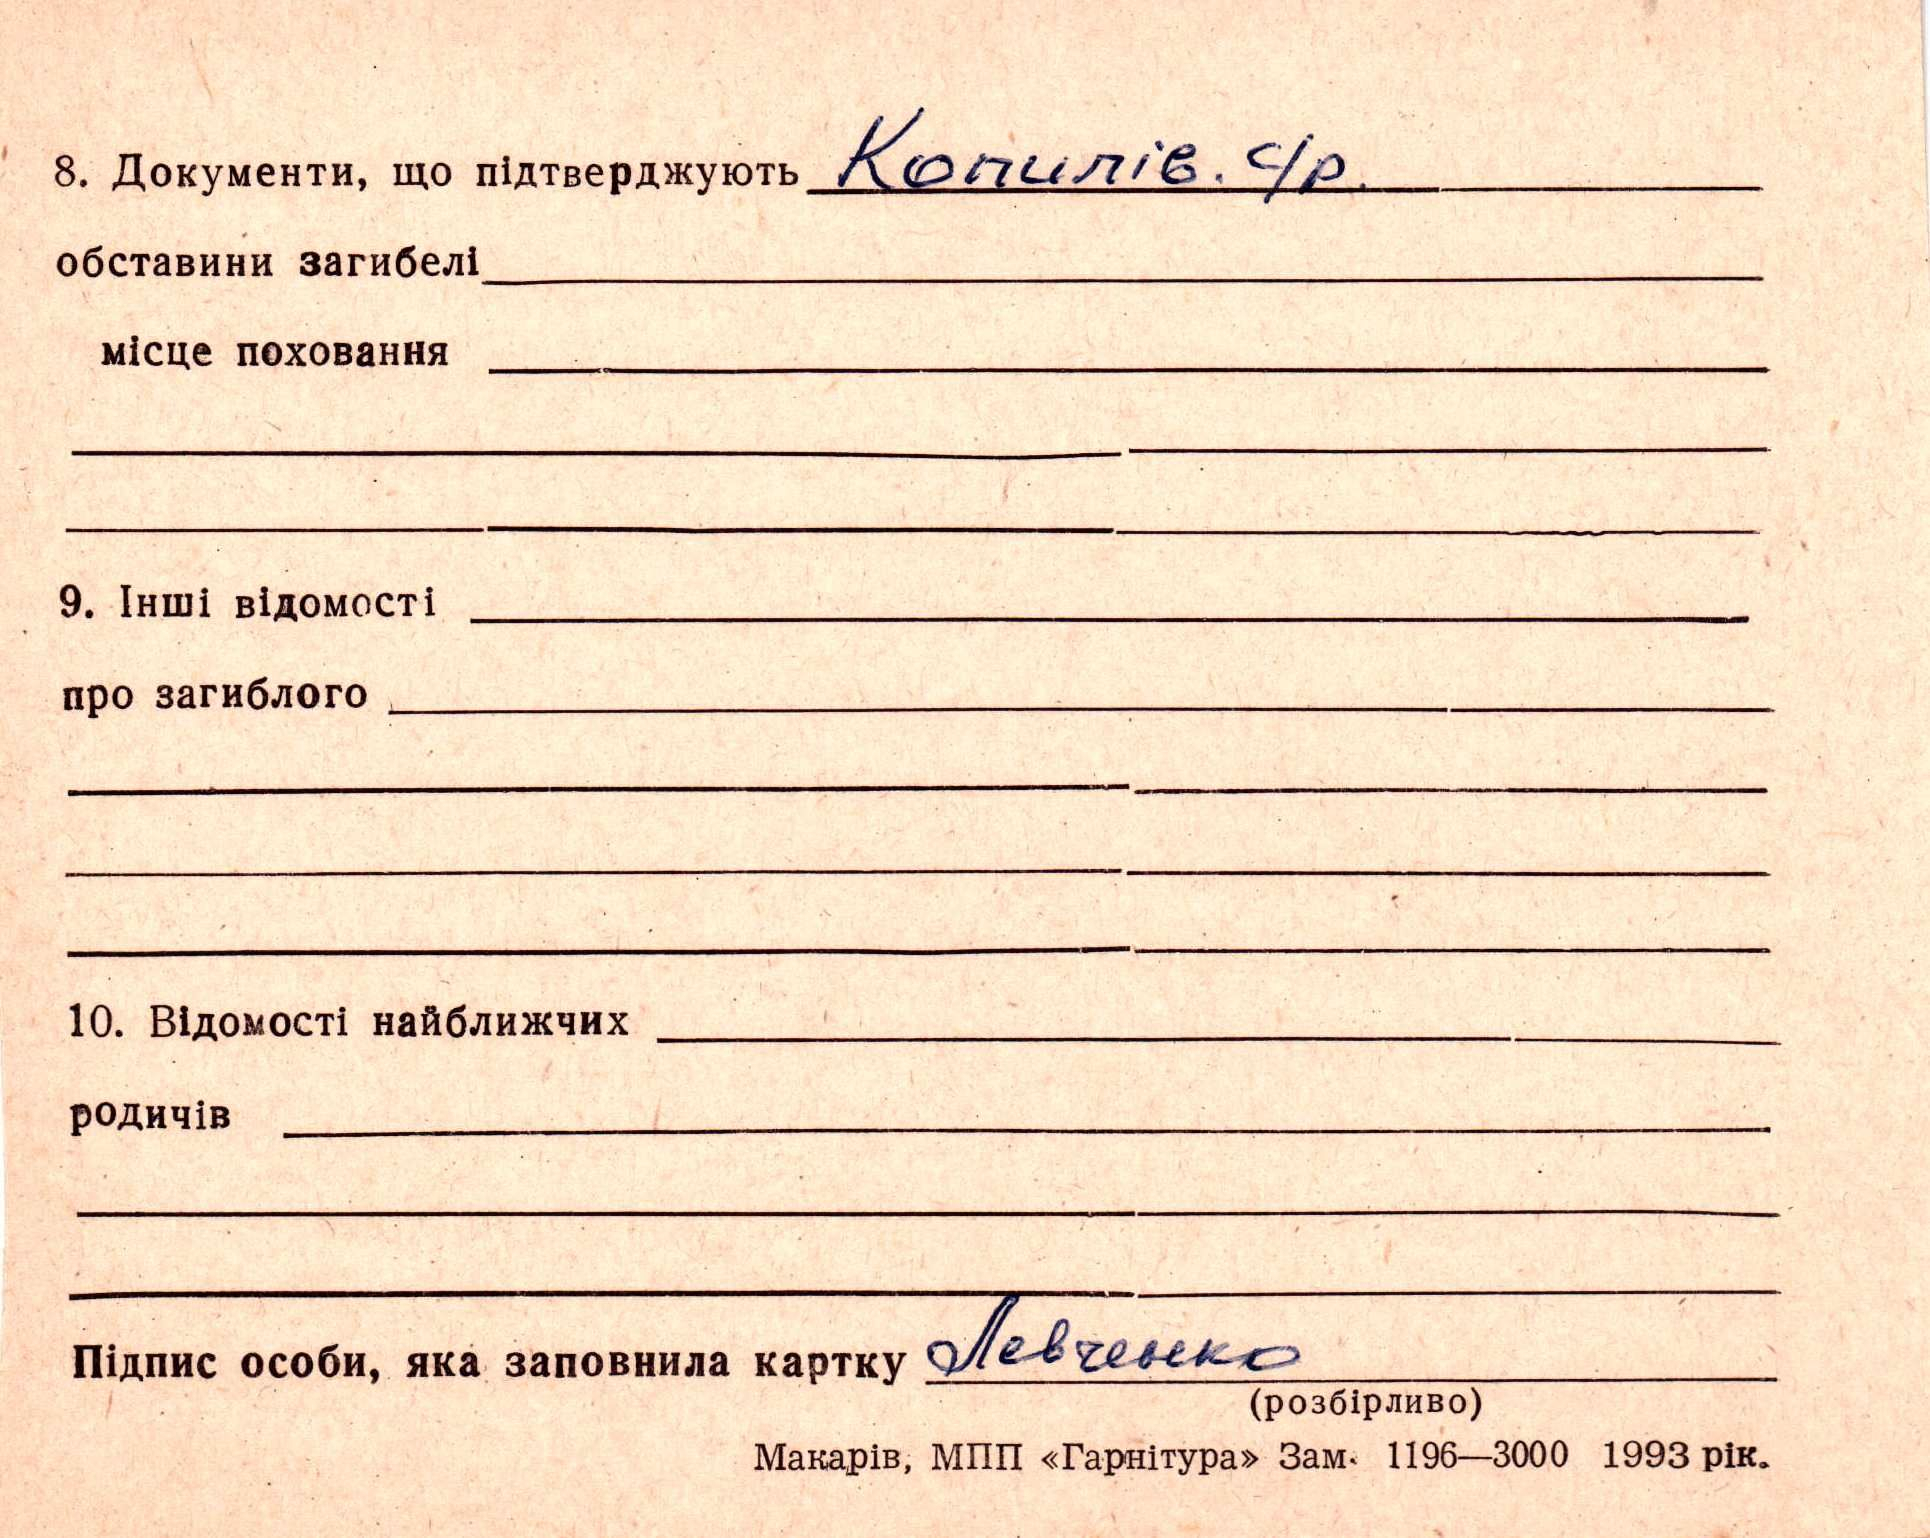 8. Документи, що підтверджують Копилів. с/р.
обставини загибелі
місце поховання
9. Інші відомості
про загиблого
10. Відомості найближчих
родичів
Підпис особи, яка заповнила картку Левченко
(розбірливо)
Макарів, МПП «Гарнітура» Зам. 1196—3000 1993 рік.